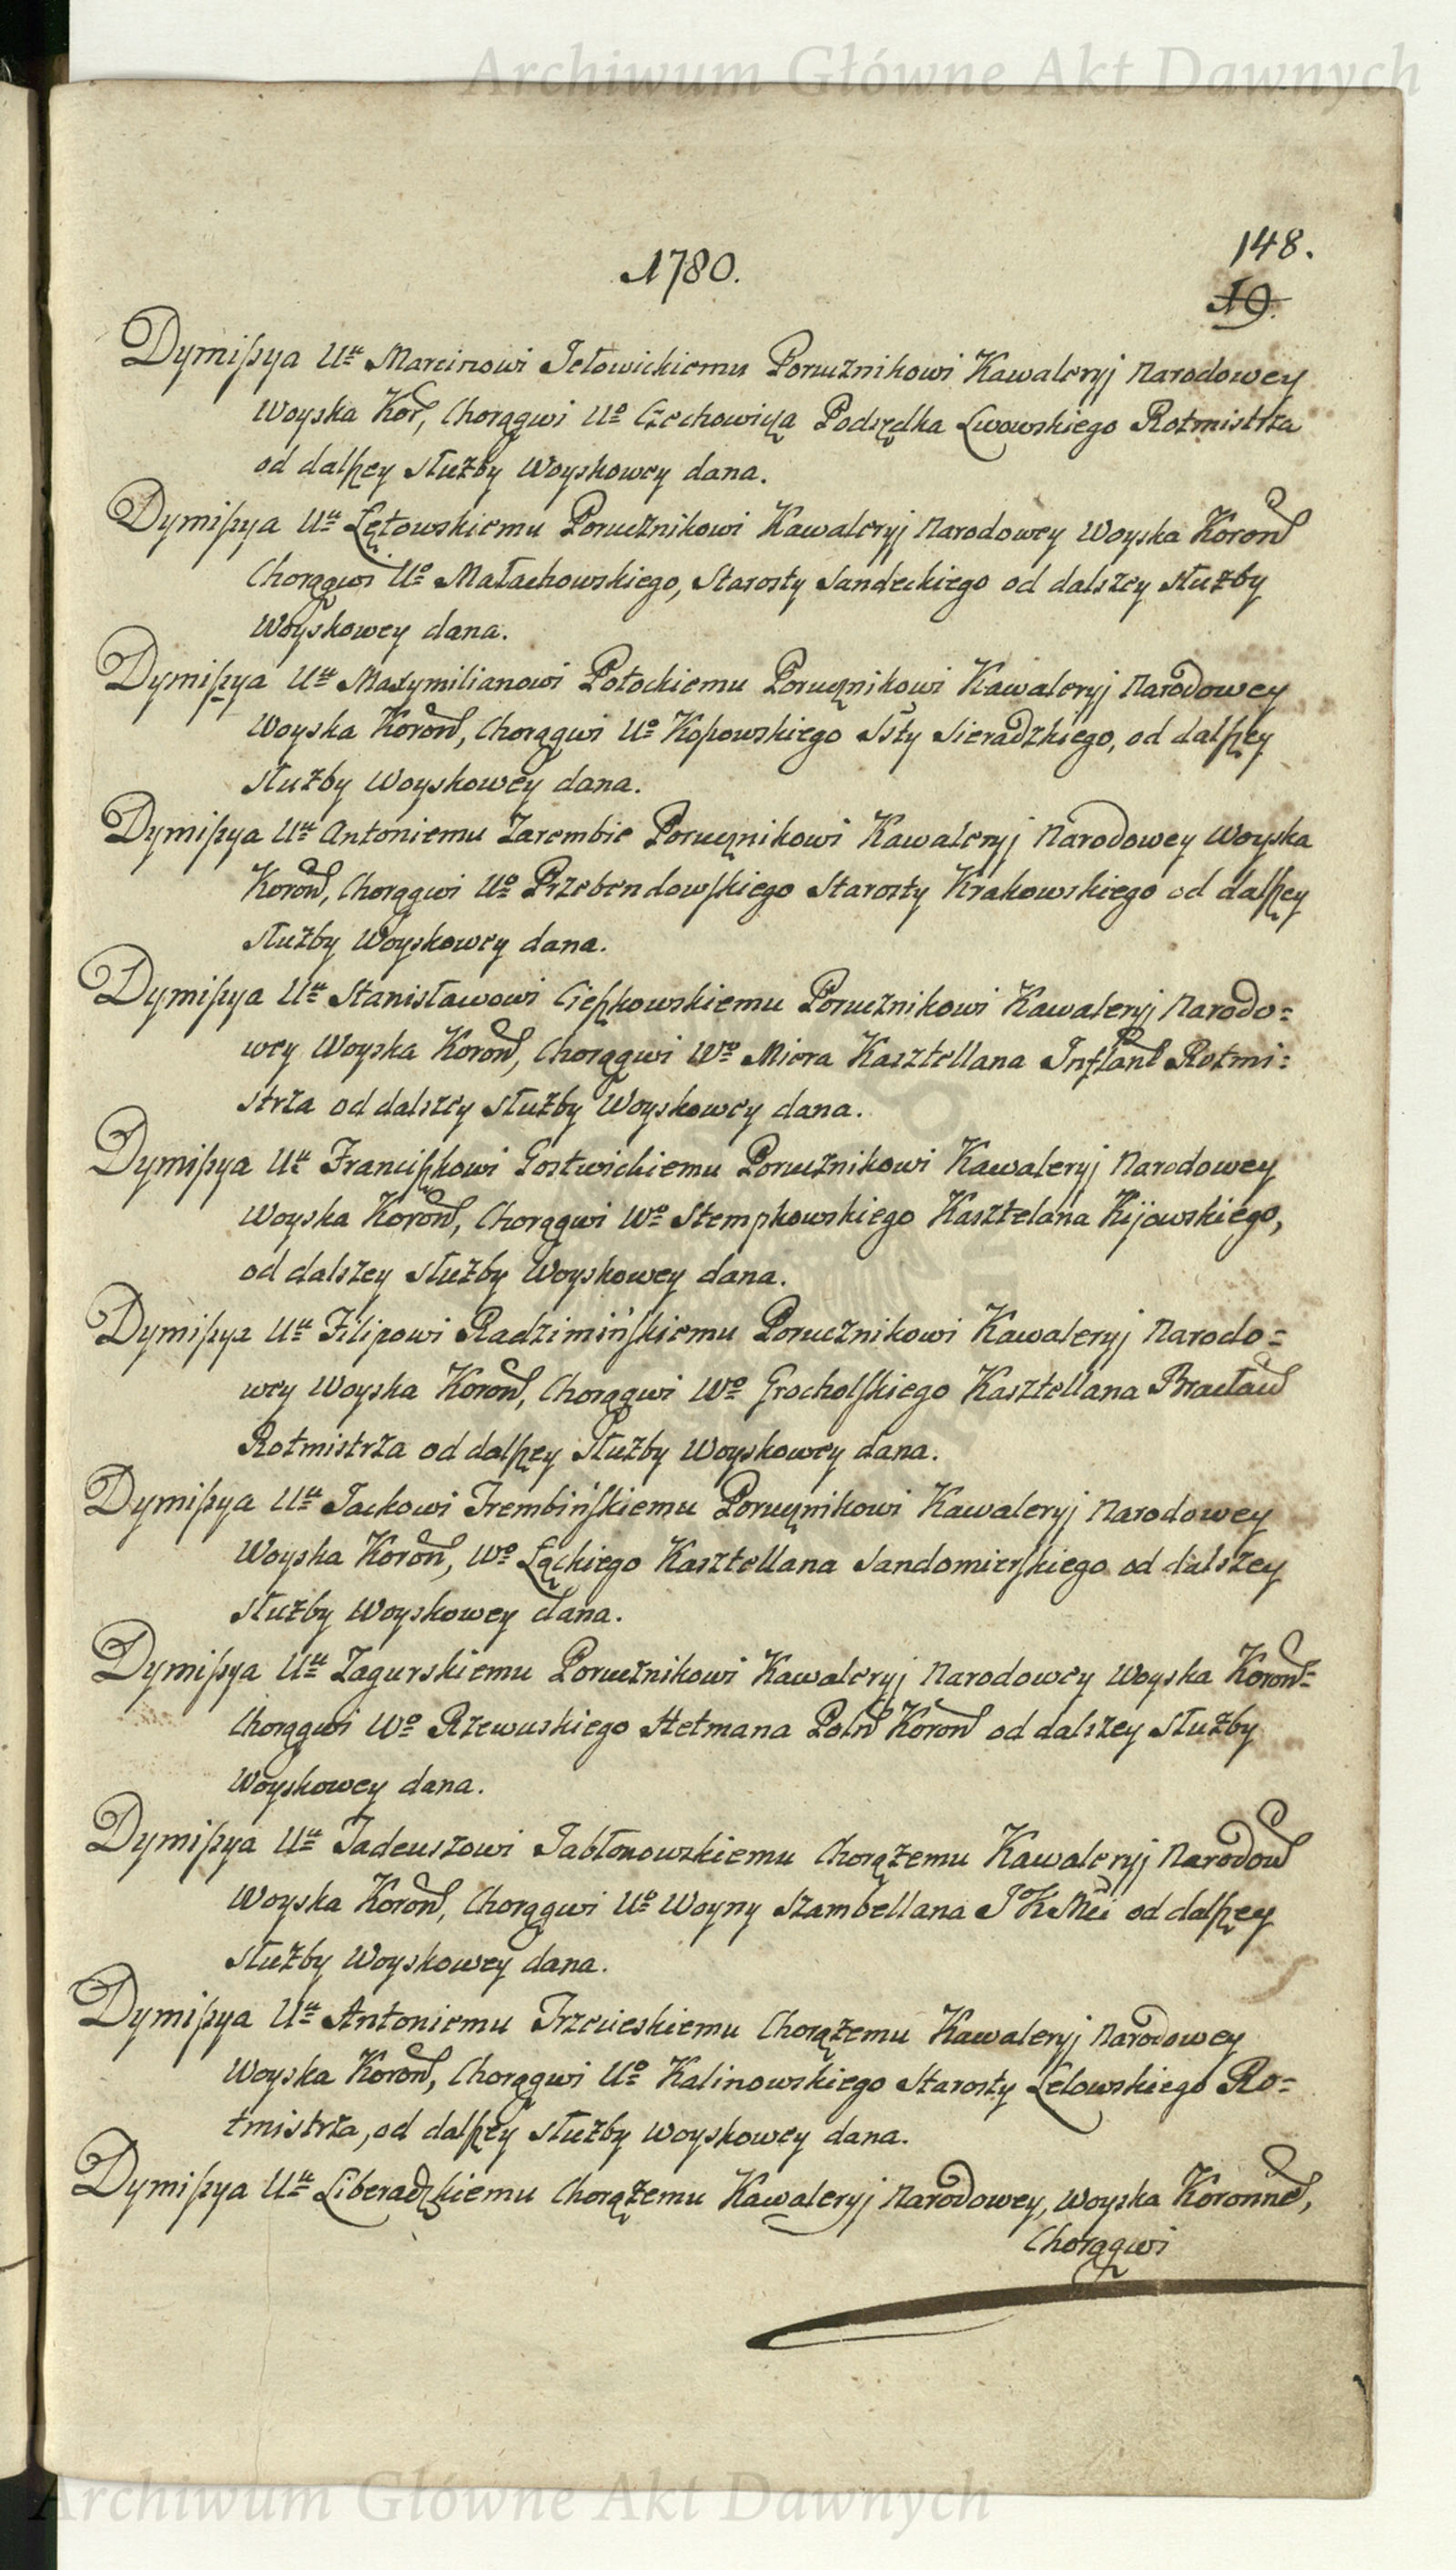 Archiwum Główne Akt Dawnych
148.
1780.
19.
Dymissya Ur Marcinowi Jełowickiemu Porucznikowi Kawaleryj Narodowey
Woyska Kor, Chorągwi Uo Czechowicza Podsędka Lwowskiego Rotmistrza
od dalszey służby Woyskowey dana.
Dymissya Ur Lętowskiemu Porucznikowi Kawaleryj Narodowey Woyska Koron
Chorągwi Uo Małachowskiego, Starosty Sandeckiego od dalszey służby
Woyskowey dana.
Dymissya Ur Maxymilianowi Potockiemu Porucznikowi Kawaleryj Narodowey
Woyska Koron, Chorągwi Uo Kossowskiego Ssty Sieradzkiego, od dalszey
służby Woyskowey dana.
Dymissya Ur Antoniemu Zarembie Porucznikowi Kawaleryj Narodowey Woyska
Koron, Chorągwi Uo Przebendowskiego Starosty Krakowskiego od dalszey
służby Woyskowey dana.
Dymissya Ur Stanisławowi Cieszkowskiemu Porucznikowi Kawaleryj Narodo=
wey Woyska Koron, Chorągwi Wo Miera Kasztellana Inflant Rotmi=
strza od dalszey służby Woyskowey dana.
Dymissya Ur Franciszkowi Gostwickiemu Porucznikowi Kawaleryj Narodowey
Woyska Koron, Chorągwi Wo Stempkowskiego Kasztelana Kijowskiego,
od dalszey służby Woyskowey dana.
Dymissya Ur Filipowi Radzimińskiemu Porucznikowi Kawaleryj Narodo=
wey Woyska Koron, Chorągwi Wo Grocholskiego Kasztellana Bracław
Rotmistrza od dalszey Służby Woyskowey dana.
Dymissya Ur Jackowi Trembińskiemu Porucznikowi Kawaleryj Narodowey
Woyska Koron, Wo Łąckiego Kasztellana Sandomierskiego od dalszey
służby Woyskowey dana.
Dymissya Ur Zagurskiemu Porucznikowi Kawaleryj Narodowey Woyska Koron=
Chorągwi Wo Rzewuskiego Hetmana Poln Koron od dalszey służby
Woyskowey dana.
Dymissya Ur Tadeuszowi Jabłonowskiemu Chorążemu Kawaleryj Narodow
Woyska Koron, Chorągwi Uo Woyny Szambellana J K Mci od dalszey
służby Woyskowey dana.
Dymissya Ur Antoniemu Trzecieskiemu Chorążemu Kawaleryj Narodowey
Woyska Koron, Chorągwi Uo Kalinowskiego Starosty Lelowskiego Ro=
tmistrza, od dalszey służby woyskowey dana.
Dymissya Ur Liberadzkiemu Chorążemu Kawaleryj Narodowey, Woyska Koronne,
Chorągwi
Archiwum Główne Akt Dawnych